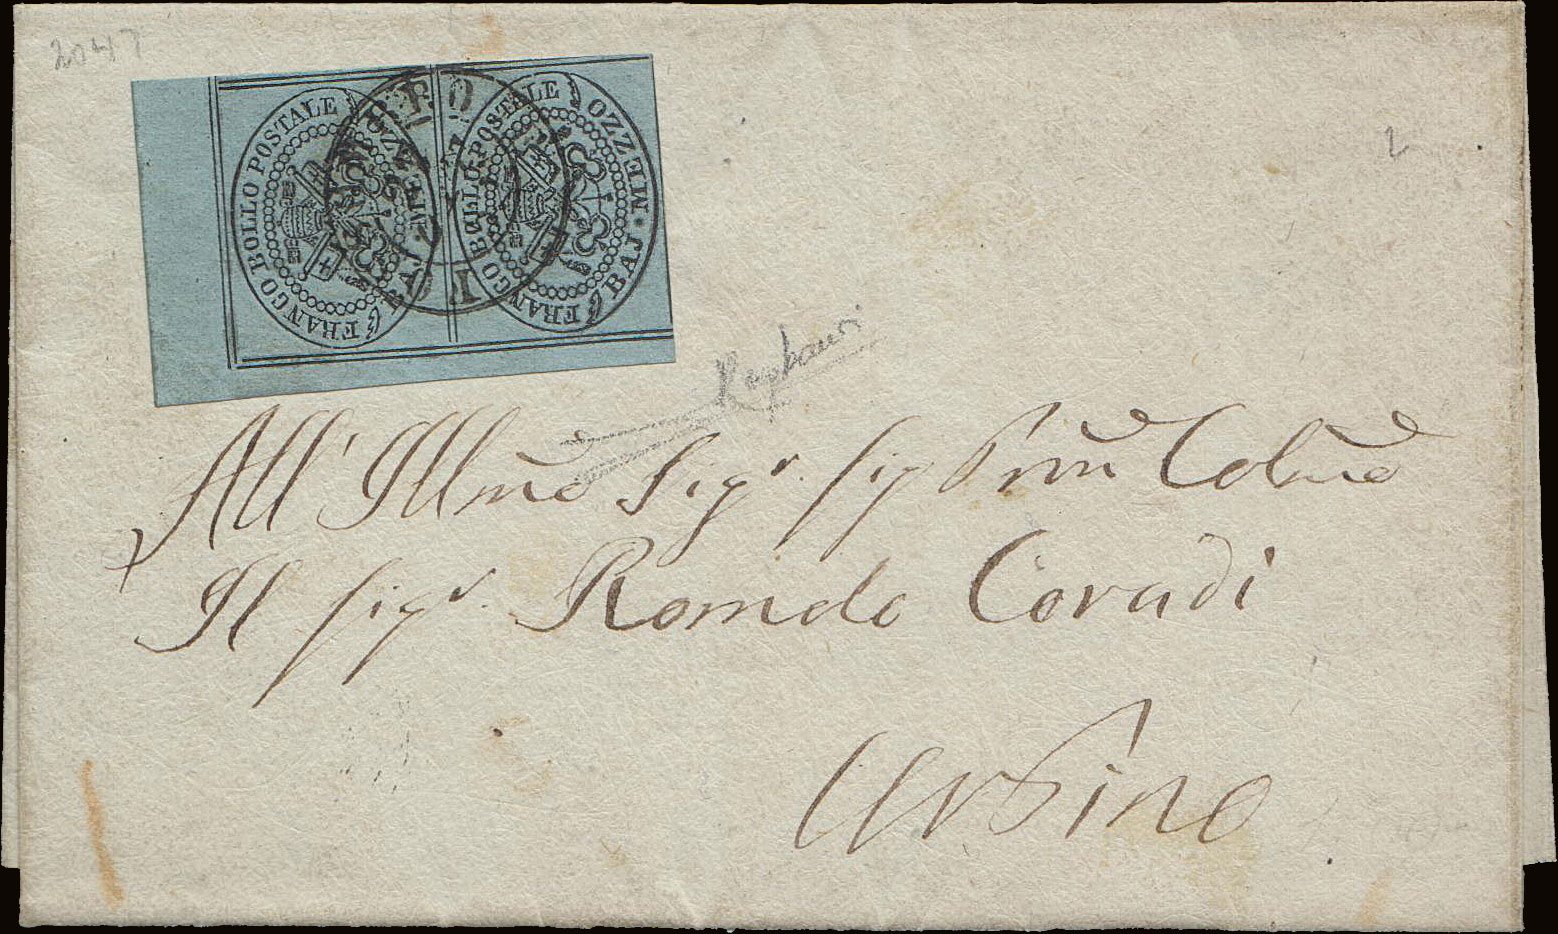 2047
FRANCO BOLLO POSTALE
FRANCO BOLLO POSTALE MEZZO BAJ
2
All' Illmo Sigr. Sig Prn Colmo
Il Sigr. Romolo Corradi
Urbino